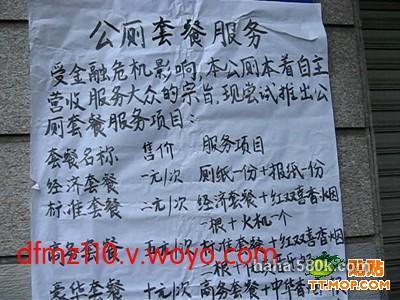 公厕套餐服务
受金融危机影响,本公厕本着自主
营收服务大众的宗旨,现尝试推出公
厕套餐服务项目:
套餐名称 售价 服务项目
经济套餐 一元/次 厕纸一份+报纸一份
标准套餐 二元/次 经济套餐+红双喜香烟
一根+火机一个
商务套餐 五元/次 标准套餐+红双喜香烟
豪华套餐 十元/次 商务套餐+中华香
dfmz10.v.woyo.com
hana.580k.com
贴贴
TT.MOP.COM